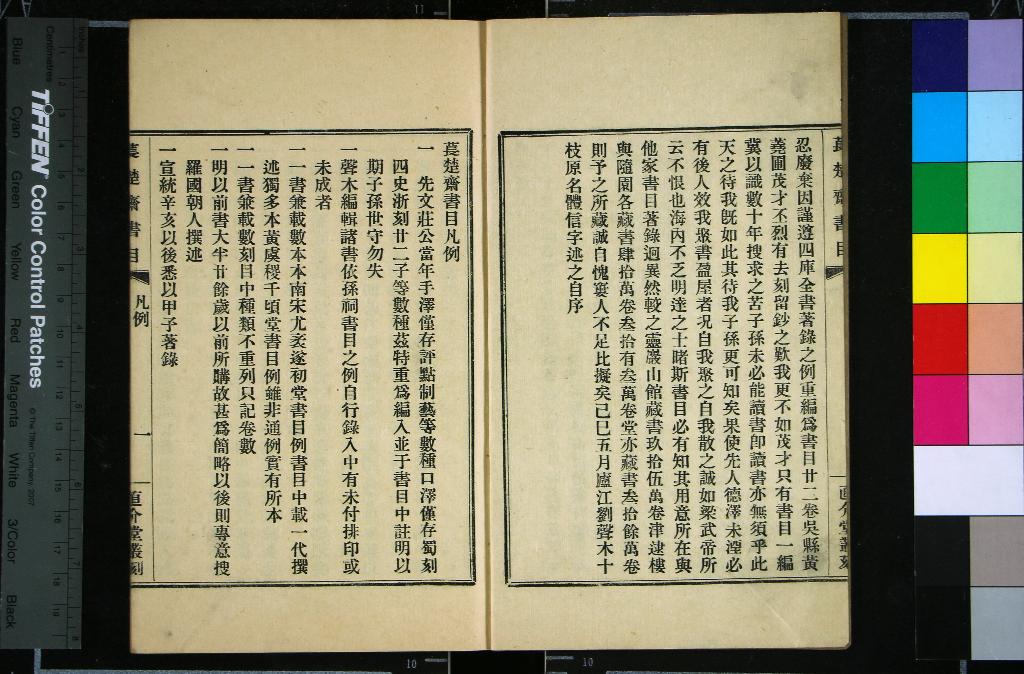 萇楚齋書目
直介堂叢刻
忍廢棄因謹遵四庫全書著錄之例重編爲書目廿二卷吳縣黃
蕘圃茂才丕烈有去刻留鈔之歎我更不如茂才只有書目一編
冀以識數十年搜求之苦子孫未必能讀書卽讀書亦無須乎此
天之待我旣如此其待我子孫更可知矣果使先人德澤未湮必
有後人效我聚書盈屋者況自我聚之自我散之誠如梁武帝所
云不恨也海內不乏明達之士睹斯書目必有知其用意所在與
他家書目著錄迥異然較之靈巖山館藏書玖拾伍萬卷津逮樓
與隨園各藏書肆拾萬卷叁拾有叁萬卷堂亦藏書叁拾餘萬卷
則予之所藏誠自愧寠人不足比擬矣己巳五月廬江劉聲木十
枝原名體信字述之自序
萇楚齋書目凡例
一 先文莊公當年手澤僅存評點制藝等數種口澤僅存蜀刻
四史浙刻廿二子等數種茲特重爲編入並于書目中註明以
期子孫世守勿失
一聲木編輯諸書依孫祠書目之例自行錄入中有未付排印或
未成者
一一書兼載數本本南宋尤袤遂初堂書目例書目中載一代撰
述獨多本黃虞稷千頃堂書目例雖非通例實有所本
一一書兼載數刻目中種類不重列只記卷數
一明以前書大半廿餘歲以前所購故甚爲簡略以後則專意搜
羅國朝人撰述
一宣統辛亥以後悉以甲子著錄
萇楚齋書目
凡例
一
直介堂叢刻
Inches
Centimetres
TIFFEN Color Control Patches
© The Tiffen Company, 2007
Blue
Cyan
Green
Yellow
Red
Magenta
White
3/Color
Black
10
10
11